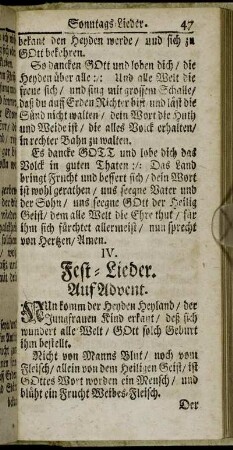 Sonntags-Lieder. 47
bekant den Heyden werde/ und sich zu
GOtt bekehren.
So dancken GOtt und loben dich/ die
Heyden über alle :/: Und alle Welt die
freue sich/ und sing mit grossem Schalle/
daß du auff Erden Richter bist und läst die
Sünd nicht walten/ dein Wort die Huth
und Weide ist/ die alles Volck erhalten/
in rechter Bahn zu walten.
Es dancke GOTT und lobe dich das
Volck in guten Thaten :/: Das Land
bringt Frucht und bessert sich/ dein Wort
ist wohl gerathen/ uns seegne Vater und
der Sohn/ uns seegne GOtt der Heilig
Geist/ dem alle Welt die Ehre thut/ für
ihm sich fürchtet allermeist/ nun sprecht
von Hertzen/ Amen.
IV.
Fest-Lieder.
Auf Advent.
NUn komm der Heyden Heyland/ der
Jungfrauen Kind erkant/ deß sich
wundert alle Welt/ GOtt solch Geburt
ihm bestellt.
Nicht von Manns Blut/ noch vom
Fleisch/ allein von dem Heiligen Geist/ ist
GOttes Wort worden ein Mensch/ und
blüht ein Frucht Weibes-Fleisch.
Der